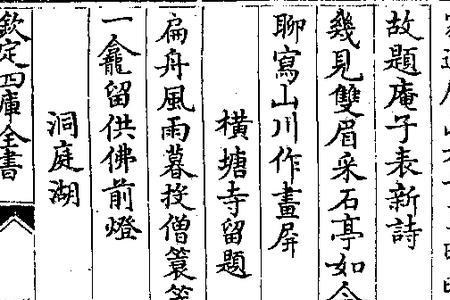 故題庵子表新詩
幾見雙眉采石亭如今
聊寫山川作畫屏
橫塘寺留題
扁舟風雨暮投僧蓑
一龕留供佛前燈
洞庭湖
欽定四庫全書